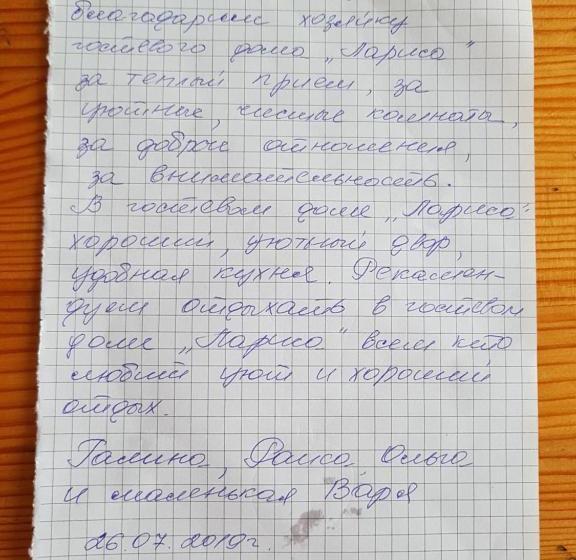 благадарим хозяйку
гостевого дома „Лариса"
за теплый прием, за
уютные, чистые комнаты,
за доброе отношения,
за внимательность.
В гостевом доме „Лариса"
хороший, уютный двор,
удобная кухня. Рекамен-
дуем отдыхать в гостевом
доме „Лариса" всем кто
любит уют и хороший
отдых.
Галина, Раиса, Ольга
и маленькая Варя
26.07.2019г.